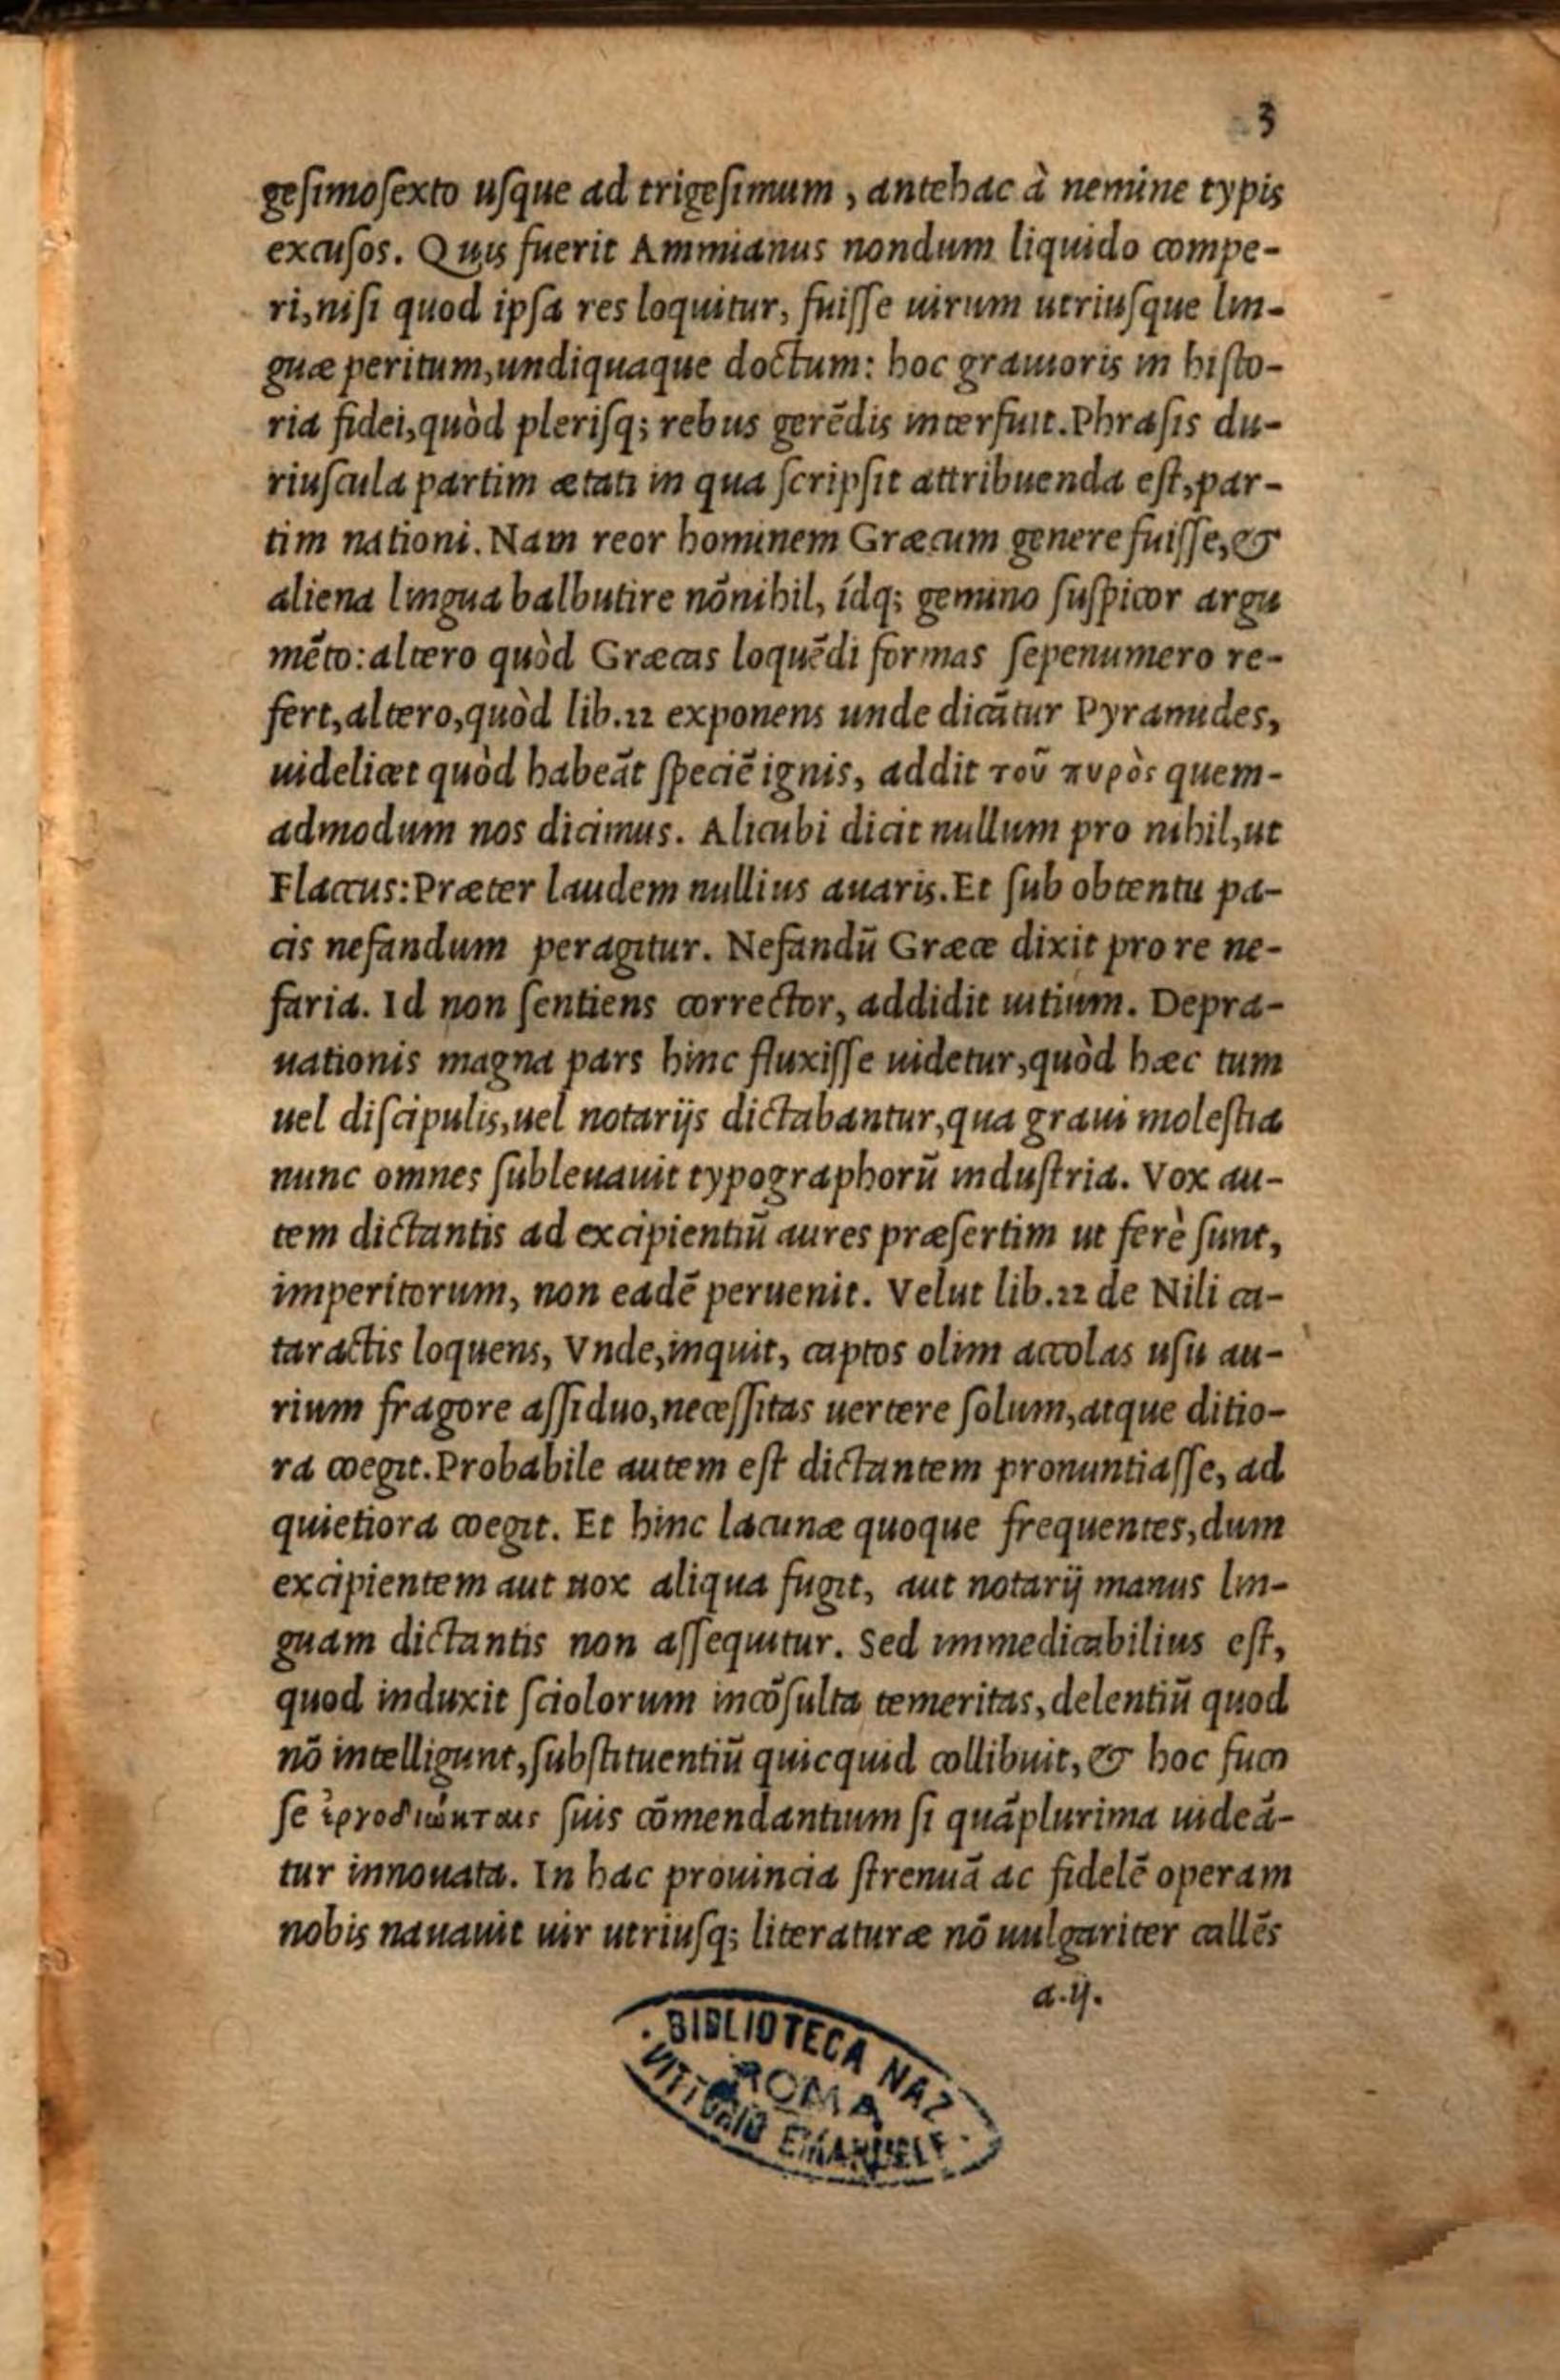 3
geſimoſexto uſque ad trigeſimum, antehac à nemine typis
excuſos. Quis fuerit Ammianus nondum liquido compe-
ri, niſi quod ipſa res loquitur, fuiſſe uirum utriuſque lin-
guæ peritum, undiquaque doctum: hoc grauioris in hiſto-
ria fidei, quòd pleriſq; rebus gerēdis interfuit. Phraſis du-
riuſcula partim ætati in qua ſcripſit attribuenda eſt, par-
tim nationi. Nam reor hominem Græcum genere fuiſſe, &
aliena lingua balbutire nōnihil, ídq; gemino ſuſpicor argu
mēto: altero quòd Græcas loquēdi formas ſepenumero re-
fert, altero, quòd lib. 22 exponens unde dicātur Pyramides,
uidelicet quòd habeāt ſpeciē ignis, addit τοῦ πυρὸς quem-
admodum nos dicimus. Alicubi dicit nullum pro nihil, ut
Flaccus: Præter laudem nullius auaris. Et ſub obtentu pa-
cis nefandum peragitur. Nefandū Græce dixit pro re ne-
faria. Id non ſentiens corrector, addidit uitium. Depra-
uationis magna pars hinc fluxiſſe uidetur, quòd hæc tum
uel diſcipulis, uel notarijs dictabantur, qua graui moleſtia
nunc omnes ſubleuauit typographorū induſtria. Vox au-
tem dictantis ad excipientiū aures præſertim ut ferè ſunt,
imperitorum, non eadē peruenit. Velut lib. 22 de Nili ca-
taractis loquens, Vnde, inquit, captos olim accolas uſu au-
rium fragore aſſiduo, neceſſitas uertere ſolum, atque ditio-
ra coegit. Probabile autem eſt dictantem pronuntiaſſe, ad
quietiora coegit. Et hinc lacunæ quoque frequentes, dum
excipientem aut uox aliqua fugit, aut notarij manus lin-
guam dictantis non aſſequitur. Sed immedicabilius eſt,
quod induxit ſciolorum incōſulta temeritas, delentiū quod
nō intelligunt, ſubſtituentiū quicquid collibuit, & hoc fuco
ſe ἐργοδιώκταις ſuis cōmendantium ſi quāplurima uideā-
tur innouata. In hac prouincia ſtrenuā ac fidelē operam
nobis nauauit uir utriuſq; literaturæ nō uulgariter callēs
a.ij.
BIBLIOTECA NAZ.
ROMA
VITTORIO EMANUELE